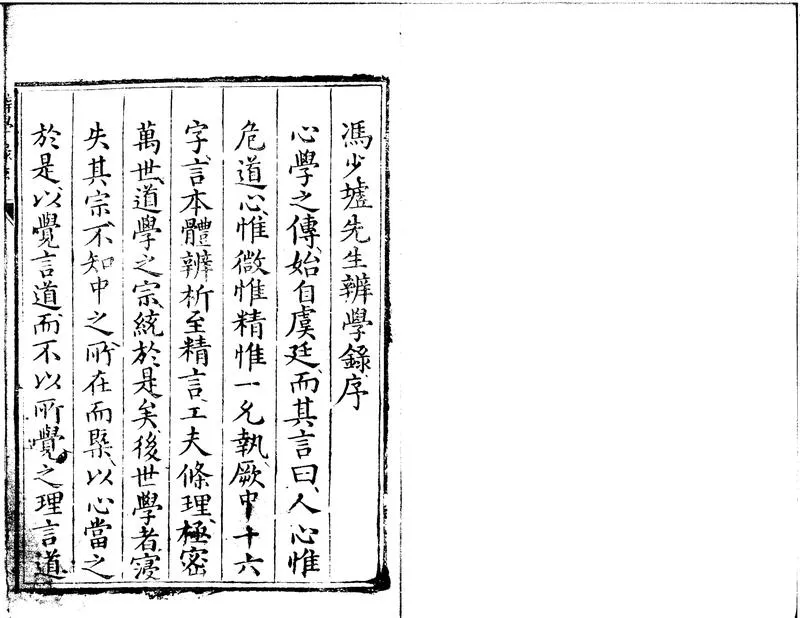 馮少墟先生辨學錄序
心學之傳始自虞廷而其言曰人心惟
危道心惟微惟精惟一允執厥中十六
字言本體辨析至精言工夫條理極密
萬世道學之宗統於是矣後世學者寖
失其宗不知中之所在而槩以心當之
於是以覺言道而不以所覺之理言道